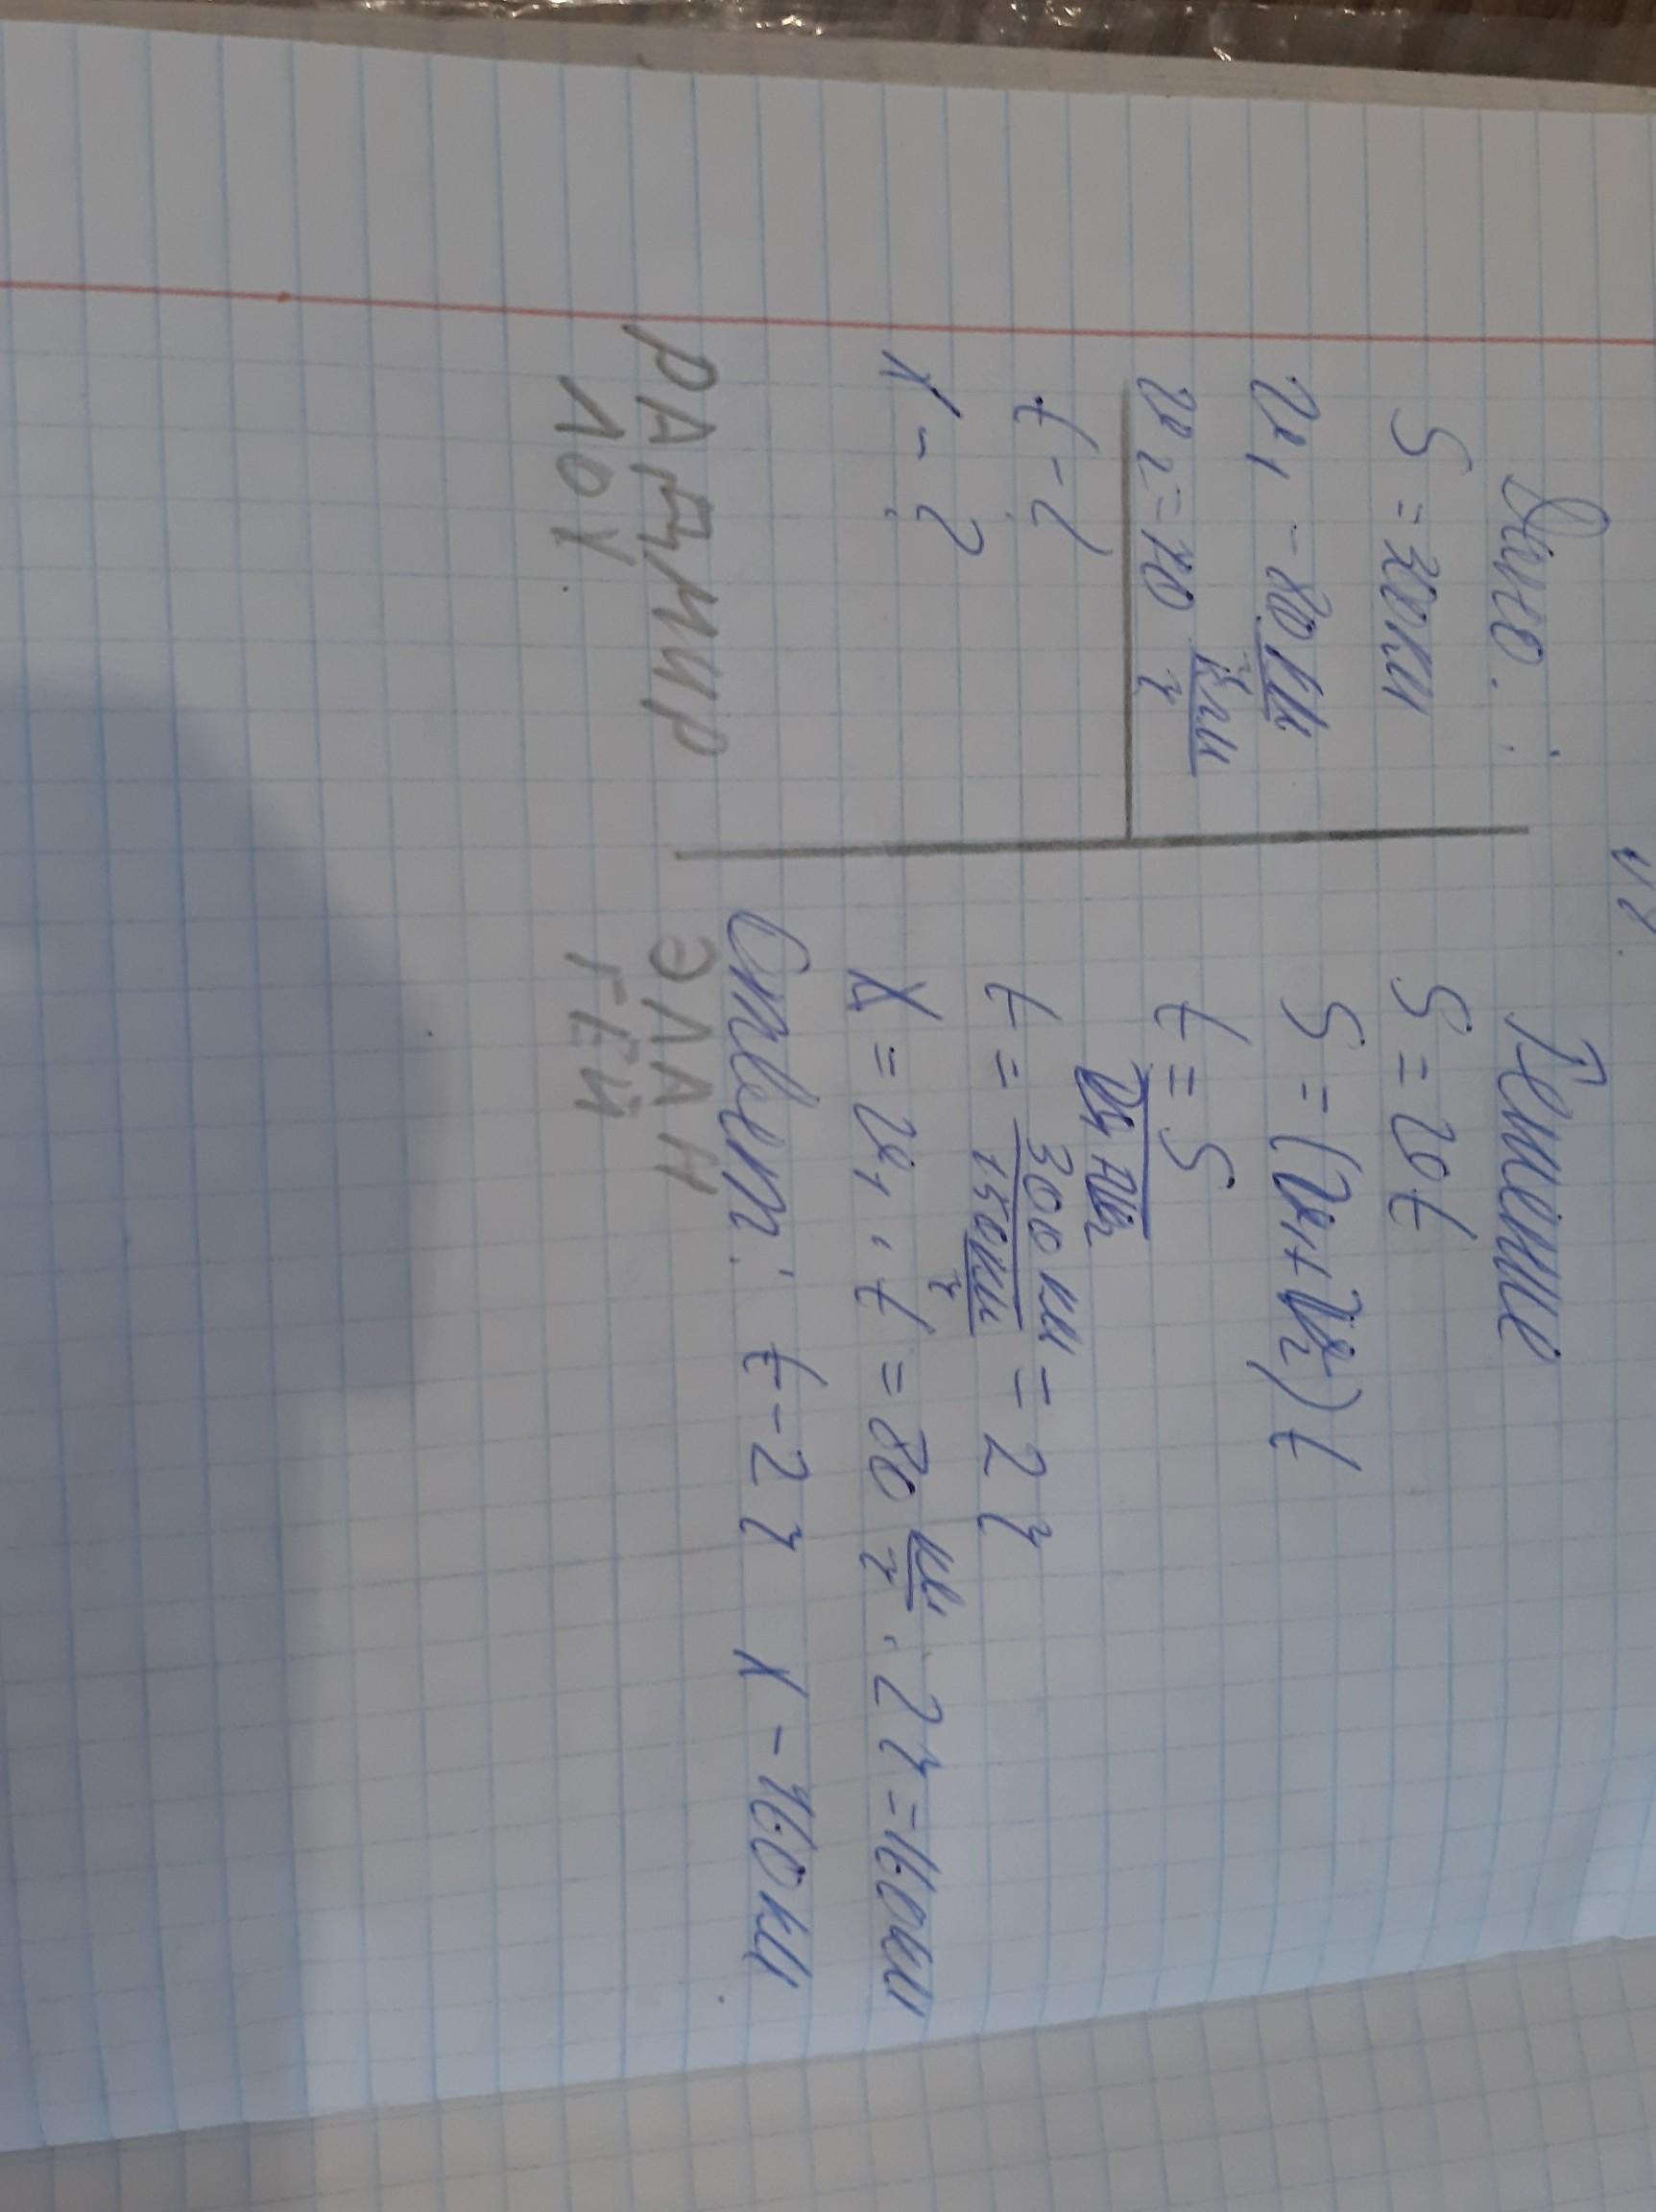 Дано:
S = 300км
v₁ - 80 км/ч
v₂ = 70 км/ч
t - ?
x - ?
Решение
S = vt
S = (v₁ + v₂) t
t = S / v₁ + v₂
t = 300 км / 150 км/ч = 2 ч
x = v₁ · t = 80 км/ч · 2 ч = 160 км
Ответ: t - 2 ч x - 160 км
РАЗМИР ЭЛАН
ЛОХ ГЕЙ